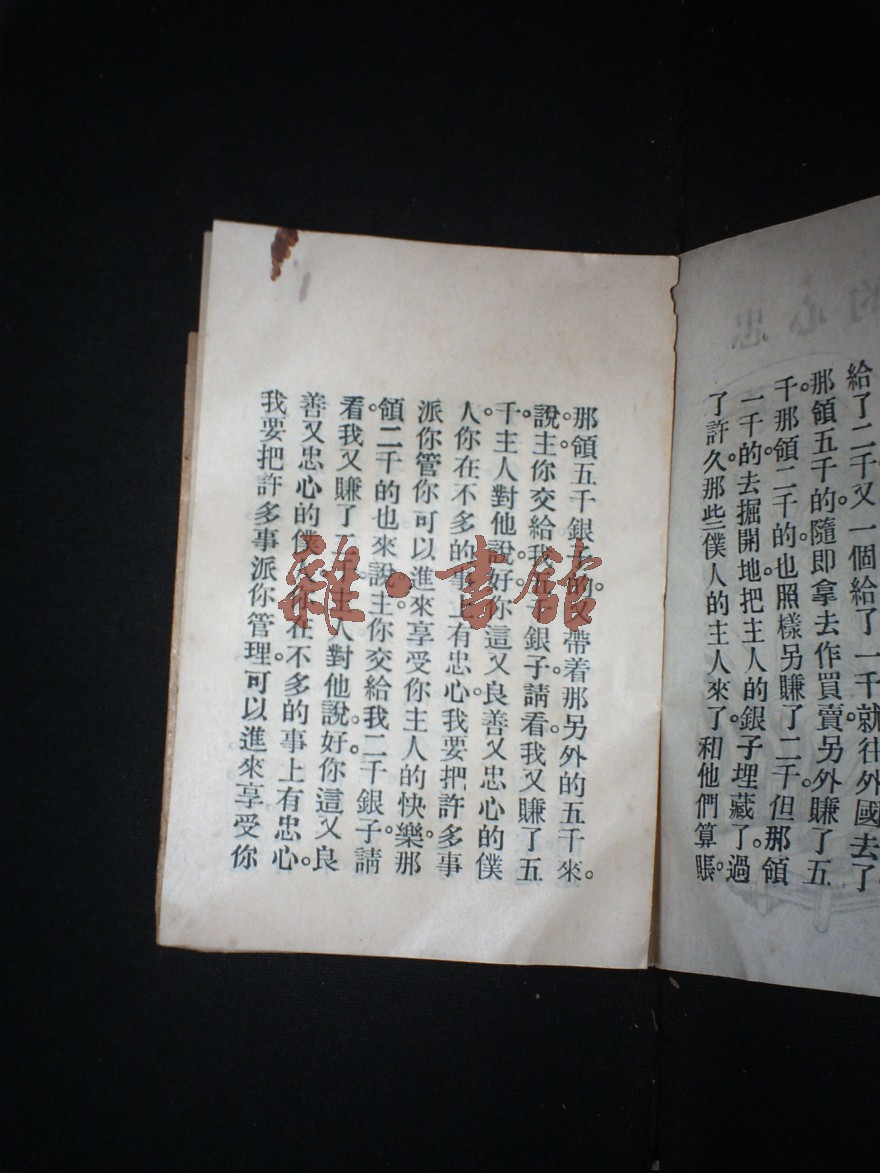 給了二千。又一個給了一千。就往外國去了。
那領五千的。隨即拿去作買賣。另外賺了五
千。那領二千的。也照樣另賺了二千。但那領
一千的。去掘開地。把主人的銀子埋藏了。過
了許久。那些僕人的主人來了。和他們算賬。
那領五千銀子的。又帶着那另外的五千來。
說。主。你交給我五千銀子。請看。我又賺了五
千。主人對他說。好。你這又良善又忠心的僕
人。你在不多的事上有忠心。我要把許多事
派你管。你可以進來享受你主人的快樂。那
領二千的。也來說。主。你交給我二千銀子。請
看。我又賺了二千。主人對他說。好。你這又良
善又忠心的僕人。你在不多的事上有忠心。
我要把許多事派你管理。可以進來享受你
雜·書館